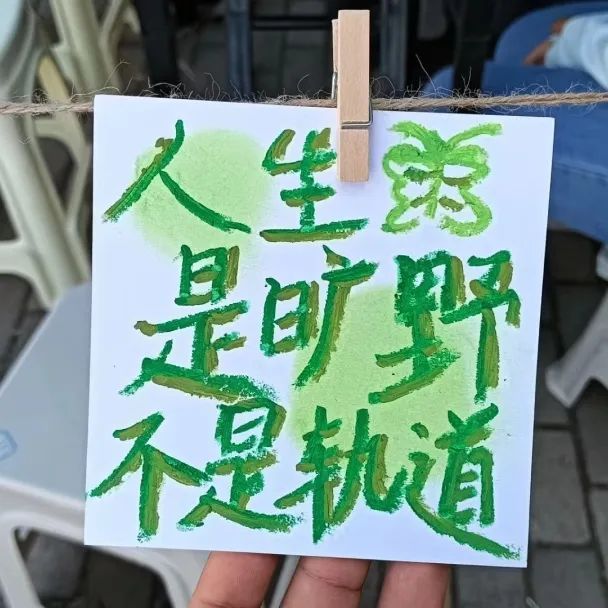 人生
是旷野
不是轨道